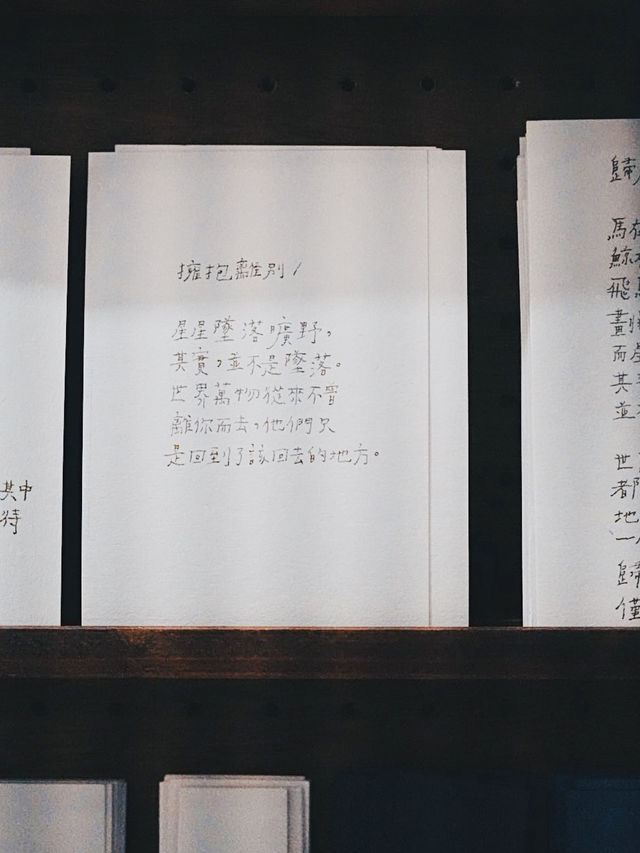 其中
待
擁抱離別/
星星墜落曠野，
其實，並不是墜落。
世界萬物從來不曾
離你而去，他們只
是回到了該回去的地方。
歸
馬
鯨
飛
畫
而星
其
並
世
都
地
一
歸
僅